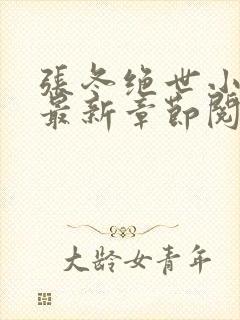 張冬绝世小
最新章節閱
大龄女青年